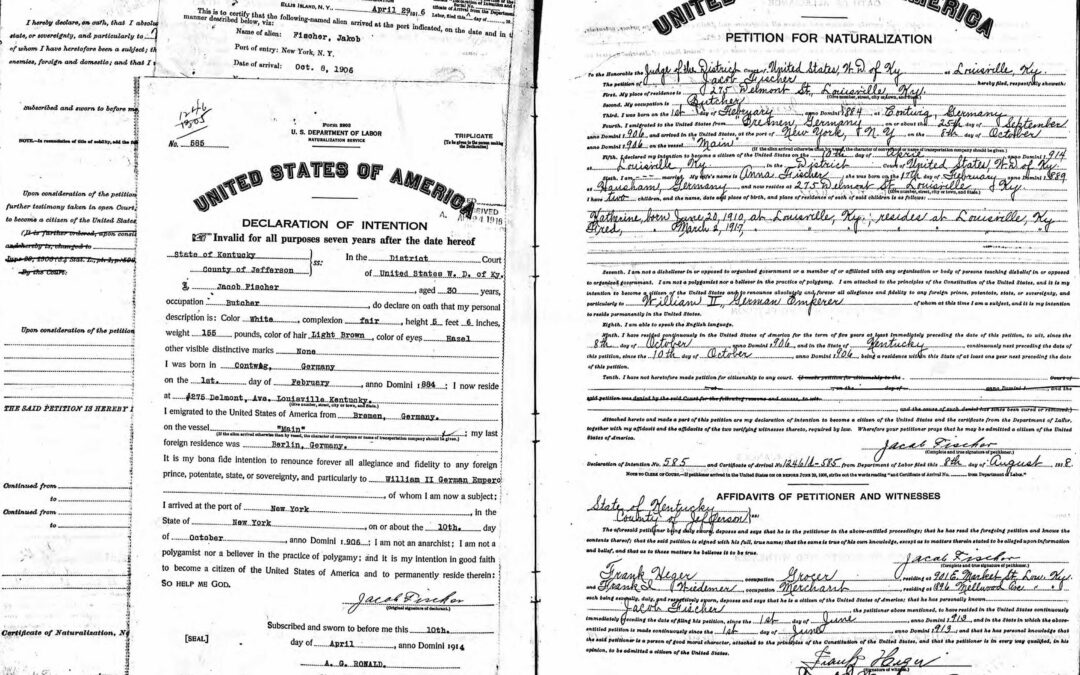 I hereby declare, on oath, that I absolu
state, or sovereignty, and particularly to
of whom I have heretofore been a subject; th
enemies, foreign and domestic; and that I
subscribed and sworn to before me
Upon consideration of the petition
further testimony taken in open Court,
to become a citizen of the United States
(It is further ordered, upon consi
and hereby is, changed to
By the Court:
Upon consideration of the petition
THE SAID PETITION IS HEREBY
Continued from
to
Continued from
to
Certificate of Naturalization, N
ELLIS ISLAND, N. Y.
April 29, 1916
This is to certify that the following-named alien arrived at the port indicated, on the date and in
manner described below, viz:
Name of alien: Fischer, Jakob
Port of entry: New York, N. Y.
Date of arrival: Oct. 8, 1906
Form 2203
U. S. DEPARTMENT OF LABOR
NATURALIZATION SERVICE
TRIPLICATE
No. 585
UNITED STATES OF AMERICA
DECLARATION OF INTENTION
Invalid for all purposes seven years after the date hereof
State of Kentucky
County of Jefferson
ss:
In the District Court
of United States W. D. of Ky.
I, Jacob Fischer, aged 30 years,
occupation Butcher, do declare on oath that my personal
description is: Color White, complexion fair, height 5 feet 6 inches,
weight 155 pounds, color of hair Light Brown, color of eyes Hasel
other visible distinctive marks None
I was born in Contwig, Germany
on the 1st. day of February, anno Domini 1884; I now reside
at #275 Delmont, Ave. Louisville Kentucky.
(Give number, street, city or town, and State.)
I emigrated to the United States of America from Bremen, Germany.
on the vessel "Main"; my last
(If the alien arrived otherwise than by vessel, the character of conveyance or name of transportation company should be given.)
foreign residence was Berlin, Germany.
It is my bona fide intention to renounce forever all allegiance and fidelity to any foreign
prince, potentate, state, or sovereignty, and particularly to William II German Empero
, of whom I am now a subject:
I arrived at the port of New York, in the
State of New York, on or about the 10th. day
of October, anno Domini 1906; I am not an anarchist; I am not a
polygamist nor a believer in the practice of polygamy; and it is my intention in good faith
to become a citizen of the United States of America and to permanently reside therein:
SO HELP ME GOD.
Jacob Fischer
(Original signature of declarant.)
Subscribed and sworn to before me this 10th.
[SEAL]
day of April, anno Domini 1914
A. G. RONALD,
UNITED STATES OF AMERICA
PETITION FOR NATURALIZATION
To the Honorable the Judge of the District Court of United States, W. D. of Ky at Louisville, Ky.
The petition of Jacob Fischer hereby filed, respectfully showeth:
First. My place of residence is 275 Delmont St, Louisville, Ky
(Give number, street, city or town, and State.)
Second. My occupation is Butcher
Third. I was born on the 1st day of February anno Domini 1884 at Contwig, Germany
Fourth. I emigrated to the United States from Bremen, Germany on or about the 25th day of September
anno Domini 1906, and arrived in the United States, at the port of New York, N.Y. on the 8th day of October
anno Domini 1906 on the vessel "Main"
(If the alien arrived otherwise than by vessel, the character of conveyance or name of transportation company should be given.)
Fifth. I declared my intention to become a citizen of the United States on the 10th day of April anno Domini 1914
at Louisville Ky in the District Court of United States, W. D. of Ky
Sixth. I am married. My wife's name is Anna Fischer she was born on the 17th day of February anno Domini 1889
at Hausham, Germany and now resides at 275 Delmont St, Louisville, Ky.
I have two children, and the name, date and place of birth, and place of residence of each of said children is as follows:
Katherine, born June 20, 1910, at Louisville, Ky.; resides at Louisville, Ky
Fred, " March 2, 1917, " " " "
Seventh. I am not a disbeliever in or opposed to organized government or a member of or affiliated with any organization or body of persons teaching disbelief in or opposed to
organized government. I am not a polygamist nor a believer in the practice of polygamy. I am attached to the principles of the Constitution of the United States, and it is my
intention to become a citizen of the United States and to renounce absolutely and forever all allegiance and fidelity to any foreign prince, potentate, state, or sovereignty, and
particularly to William II, German Emperer of whom at this time I am a subject, and it is my intention
to reside permanently in the United States.
Eighth. I am able to speak the English language.
Ninth. I have resided continuously in the United States of America for the term of five years at least immediately preceding the date of this petition, to wit, since the
8th day of October anno Domini 1906, and in the State of Kentucky continuously next preceding the date
of this petition, since the 10th day of October anno Domini 1906, being a residence within this State of at least one year next preceding the date
of this petition.
Tenth. I have not heretofore made petition for citizenship to any court.
Attached hereto and made a part of this petition are my declaration of intention to become a citizen of the United States and the certificate from the Department of Labor,
together with my affidavit and the affidavits of the two verifying witnesses thereto, required by law. Wherefore your petitioner prays that he may be admitted a citizen of the United
States of America.
Jacob Fischer
(Complete and true signature of petitioner.)
Declaration of Intention No. 585 and Certificate of Arrival No. 12461d-585 from Department of Labor filed this 8th day of August 1918
AFFIDAVITS OF PETITIONER AND WITNESSES
State of Kentucky
County of Jefferson
ss:
The aforesaid petitioner being duly sworn, deposes and says that he is the petitioner in the above-entitled proceedings; that he has read the foregoing petition and knows the
contents thereof; that the said petition is signed with his full, true name; that the same is true of his own knowledge, except as to matters therein stated to be alleged upon information
and belief, and that as to those matters he believes it to be true.
Jacob Fischer
(Complete and true signature of petitioner.)
Frank Heger, occupation Grocer, residing at 901 E. Market St, Lou. Ky.
and Frank L. Wiedemer, occupation Merchant, residing at 1896 Mellwood Ave. " "
each being severally, duly, and respectively sworn, deposes and says that he is a citizen of the United States of America; that he has personally known
Jacob Fischer the petitioner above mentioned, to have resided in the United States continuously
immediately preceding the date of filing his petition, since the 1st day of June anno Domini 1913 and in the State in which the above-
entitled petition is made continuously since the 1st day of June anno Domini 1913; and that he has personal knowledge that
the said petitioner is a person of good moral character, attached to the principles of the Constitution of the United States, and that the petitioner is in every way qualified, in his
opinion, to be admitted a citizen of the United States.
Frank Heger